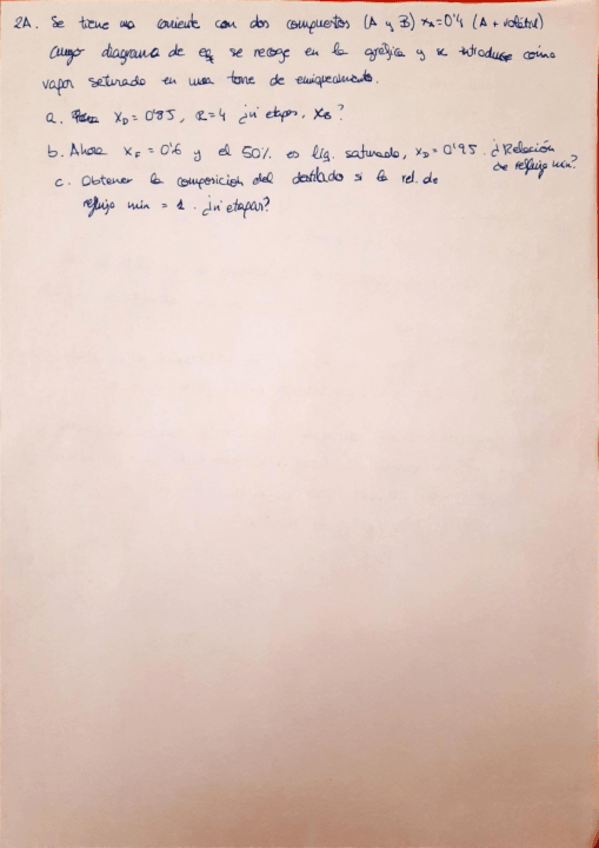 2A. Se tiene una corriente con dos compuestos (A y B) xA=0'4 (A + volátil)
cuyo diagrama de eq se recoge en la gráfica y se introduce como
vapor saturado en una torre de enriquecimiento.
a. XD = 0'85, R=4 ¿nº etapas, XB?
b. Ahora XF = 0'6 y el 50% es líq. saturado, XD = 0'95. ¿Relación
de reflujo min?
c. Obtener la composición del destilado si la rel. de
reflujo min = 1. ¿nº etapas?